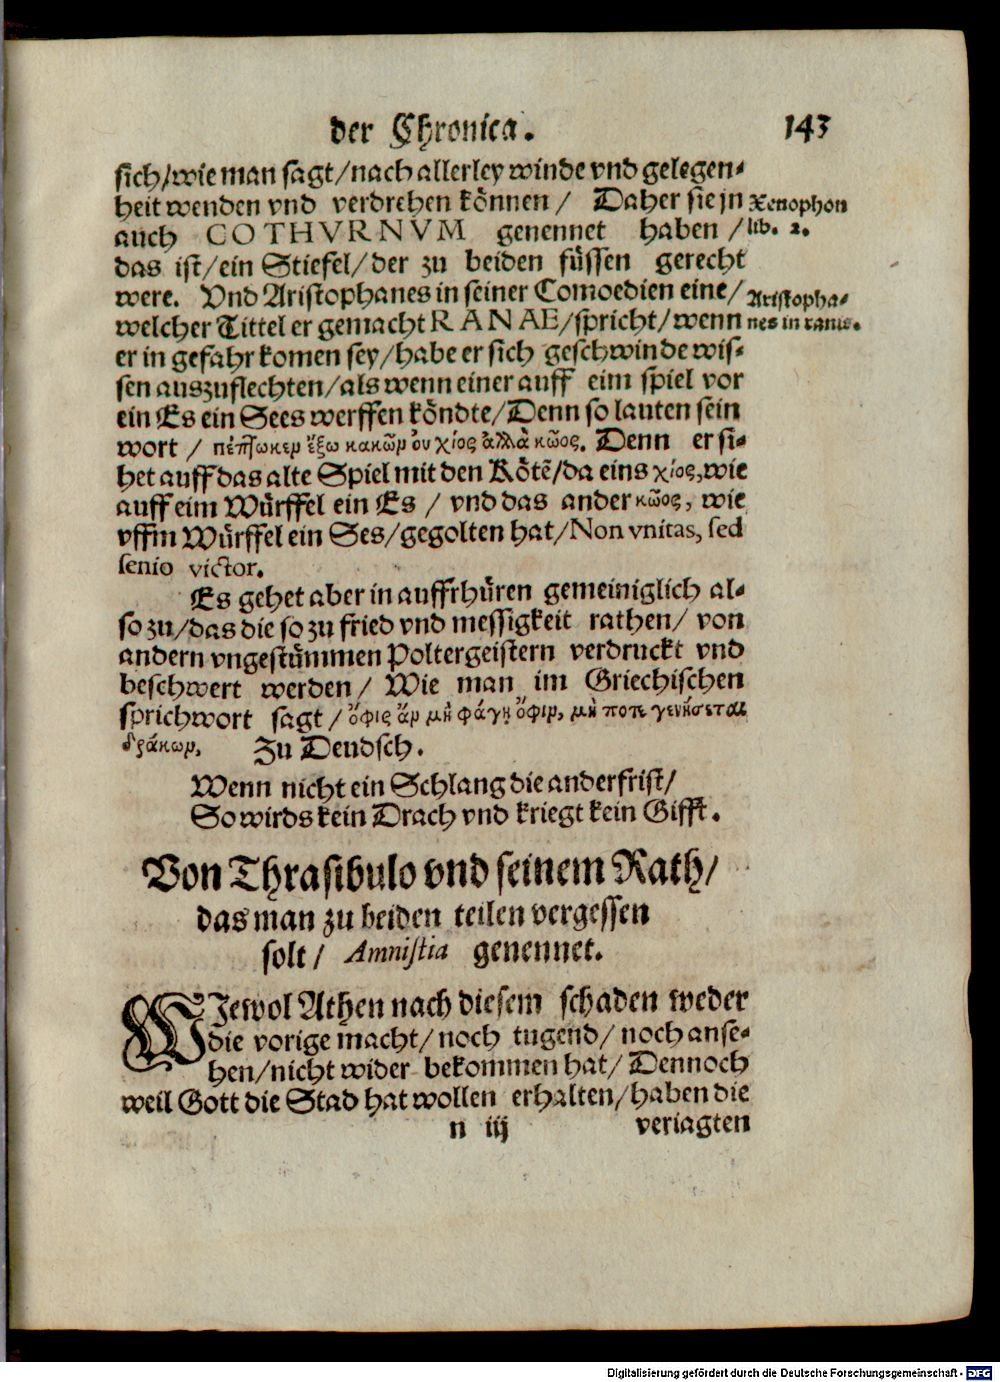 der Chronica. 143
sich/wie man sagt/nach allerley winde vnd gelegen-
heit wenden vnd verdrehen können / Daher sie jn
Xenophon
auch COTHVRNVM genennet haben /
lib. 2.
das ist/ein Stiefel/der zu beiden füssen gerecht
were. Vnd Aristophanes in seiner Comoedien eine/
Aristopha-
welcher Tittel er gemacht RANAE/spricht/wenn
nes in ranis.
er in gefahr komen sey/habe er sich geschwinde wis-
sen auszuflechten/als wenn einer auff eim spiel vor
ein Es ein Sees werffen köndte/Denn so lauten sein
wort / πέπτωκεν ἔξω κακῶν ὀυ χίος ἀλλὰ κῶος. Denn er si-
het auff das alte Spiel mit den Kötē/da eins χίος, wie
auff eim Würffel ein Es / vnd das ander κῶος, wie
vffm Würffel ein Ses/gegolten hat/Non vnitas, sed
senio victor.
Es gehet aber in auffrhüren gemeiniglich al-
so zu/das die so zu fried vnd messigkeit rathen/ von
andern vngestümmen Poltergeistern verdruckt vnd
beschwert werden/ Wie man im Griechischen
sprichwort sagt / ὄφις ἂν μὴ φάγῃ ὄφιν, μή ποτε γενήσεται
δράκων, Zu Deudsch.
Wenn nicht ein Schlang die ander frist/
So wirds kein Drach vnd kriegt kein Gifft.
Von Thrasibulo vnd seinem Rath/
das man zu beiden teilen vergessen
solt / Amnistia genennet.
WJewol Athen nach diesem schaden weder
die vorige macht/ noch tugend/ noch anse-
hen/nicht wider bekommen hat/ Dennoch
weil Gott die Stad hat wollen erhalten/haben die
n iij veriagten
Digitalisierung gefördert durch die Deutsche Forschungsgemeinschaft - DFG